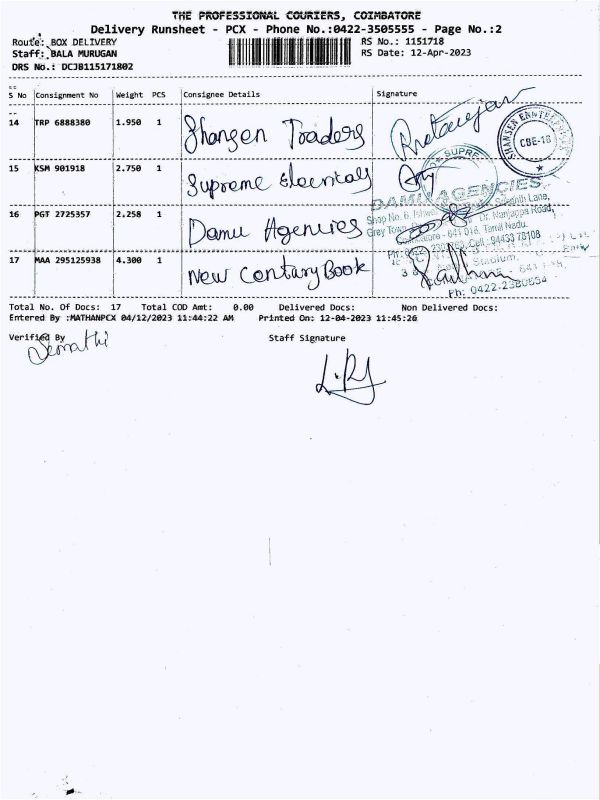 THE PROFESSIONAL COURIERS, COIMBATORE
Delivery Runsheet - PCX - Phone No.:0422-3505555 - Page No.:2
Route: BOX DELIVERY
RS No.: 1151718
Staff: BALA MURUGAN
RS Date: 12-Apr-2023
DRS No.: DCJB115171802
S No Consignment No Weight PCS Consignee Details Signature
14 TRP 6888380 1.950 1 Shansen Traders
SHANSEN ENTERPRISES CBE-18
15 KSM 901918 2.750 1 Supreme Elecritals
SUPRE
16 PGT 2725357 2.258 1 Damu Agencies
DAMU AGENCIES
Shop No. 6, Seventh Lane,
Grey Town, Dr. Nanjappa Road,
Coimbatore - 641 018. Tamil Nadu.
Cell: 94433 78108
17 MAA 295125938 4.300 1 New Contary Book
Stadium,
Ph: 0422-2380554
Total No. Of Docs: 17 Total COD Amt: 0.00 Delivered Docs: Non Delivered Docs:
Entered By :MATHANPCX 04/12/2023 11:44:22 AM Printed On: 12-04-2023 11:45:26
Verified By Staff Signature